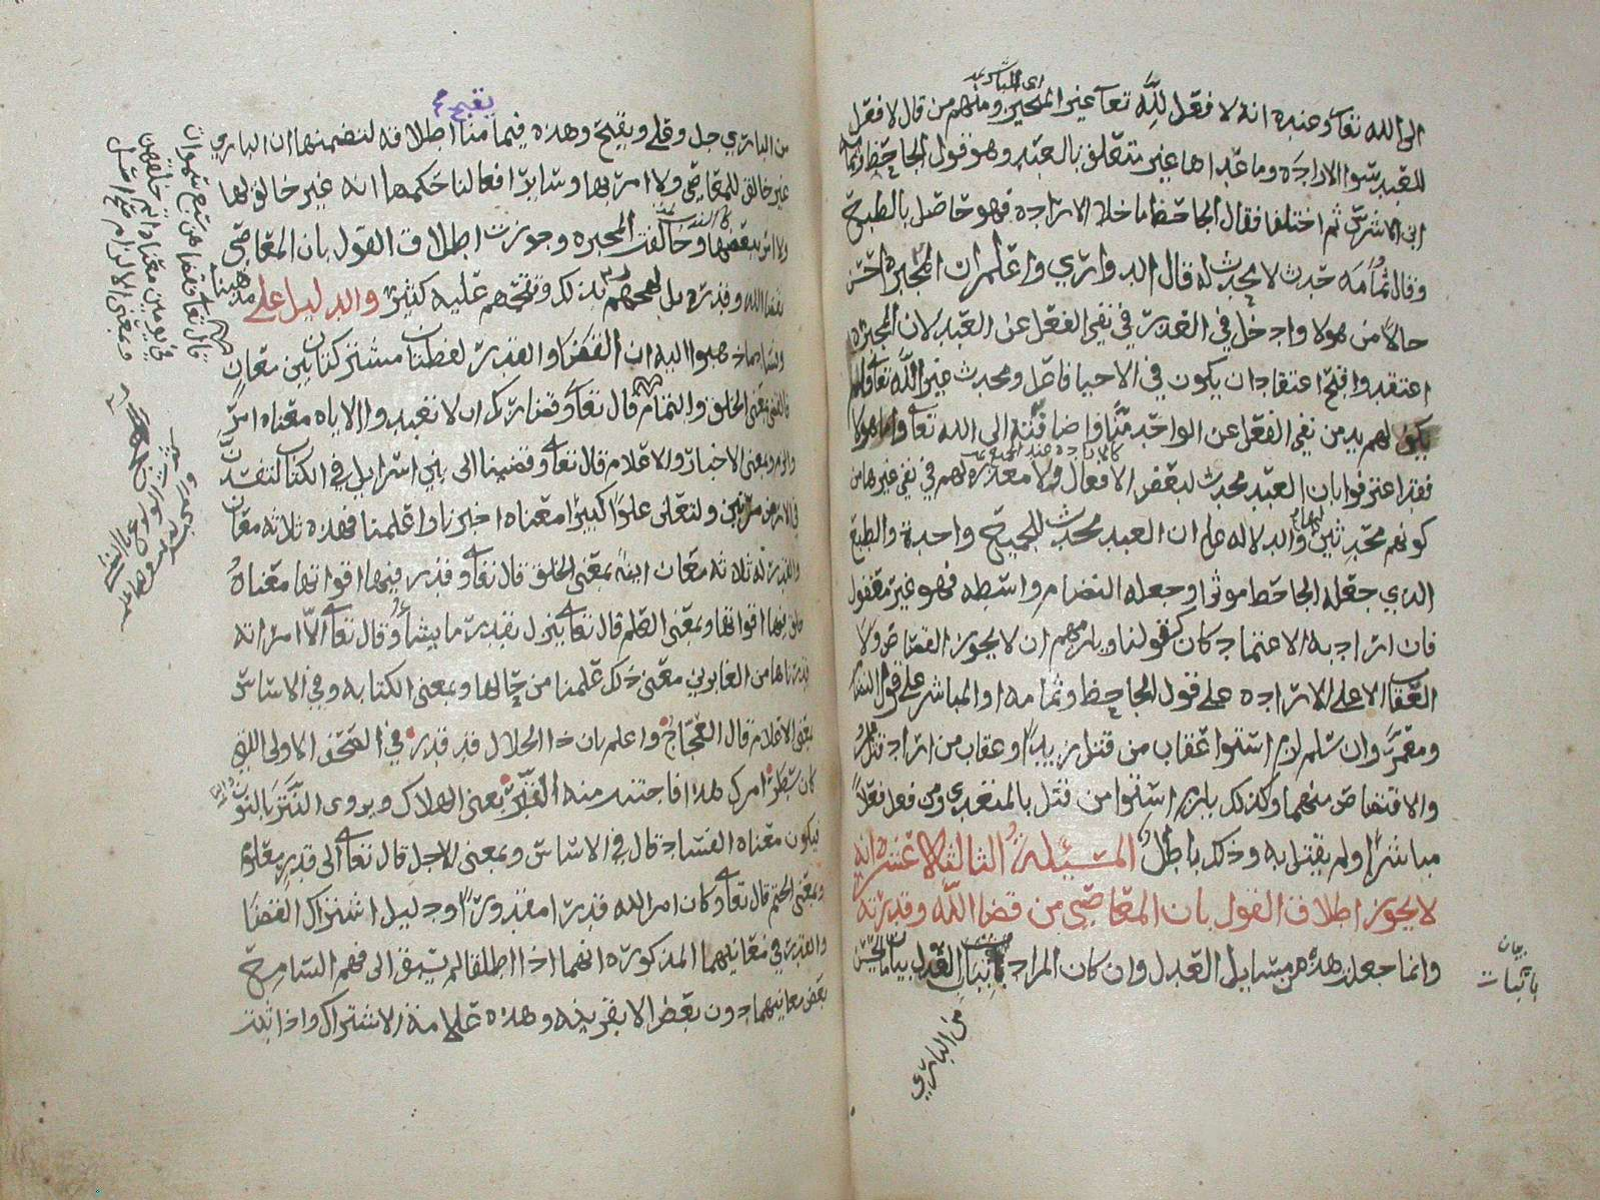 الى الله تعالى وعنده انه لا فعل لله تعالى غير المتحيز ومنهم من قال لا فعل
للعبد سوا الارادة وما عداها غير متعلق بالعبد وهو قول الجاحظ وثمامة
ابن الاشرس ثم اختلفا فقال الجاحظ ما خلا الارادة فهو حاصل بالطبع
وقال ثمامه حدث لا يحدث له قال الدواري واعلم ان المجبرة احسن
حالا من هولا وادخل في العذر في نفي الفعل عن العبد لان المجبرة
اعتقدوا قبح اعتقاد ان يكون في الاحيا فاعل ومحدث غير الله تعالى فلم
يكن لهم بد من نفي الفعل عن الواحد منا واضافته الى الله تعالى واما هولا
فقد اعترفوا بان العبد محدث لبعض الافعال ولا معذرة لهم في نفي غيرها من
كونهم محدثين لها والدلاله على ان العبد محدث للجميع واحدة والطبع
الذي جعله الجاحظ موثرا وجعله النظام واسطه فهو غير معقول
فان اراد به الاعتماد كان كقولنا ويلزمهم ان لا يجوز القصاص ولا
العقاب الا على الارادة على قول الجاحظ وثمامه او المباشر على قول النظام
ومعمر وان سلم لزم استوا عقاب من قتل زيدا وعقاب من اراد قتله
والاقتصاص منهما وكذلك يلزم استوا من قتل بالمتعدي ومن فعل فعلا
مباشرا ولم يقتل به وذلك باطل المسئلة الثالثة عشرة انه
لا يجوز اطلاق القول بان المعاصي من قضا الله وقدره
وانما جعلت هذه من مسايل العدل وان كان المراد باثبات العدل بيان ما يحسن
بيان
باثبات
من الباري
يقبح
من الباري جل وعلى ويقبح وهذه فيما منا اطلاقه لتضمنها ان الباري
غير خالق للمعاصي ولا امر بها وساير افعالنا حكمها انه غير خالق لها
ولا امر ببعضها وخالفت المجبره وجوزت اطلاق القول بان المعاصي
بقضا الله وقدره بل لهجهم بذلك وتبجحهم عليه كثير والدليل على
ما ذهبوا اليه ان القضا والقدر لفظتان مشتركتان بين معان
فالقضا بمعنى الخلق والتمام قال تعالى وقضا ربك ان لا تعبدوا الا اياه معناه امر
والزم وبمعنى الاخبار والاعلام قال تعالى وقضينا الى بني اسرايل في الكتاب لتفسدن
في الارض مرتين ولتعلن علوا كبيرا معناه اخبرنا واعلمنا فهذه ثلاثه معان
والقدر له ثلاثه معان ايضا بمعنى الخلق قال تعالى وقدر فيها اقواتها معناه
خلق فيها اقواتها وبمعنى العلم قال تعالى ينزل بقدر ما يشا وقال تعالى الا امراته
قدرناها من الغابرين معنى ذلك علمنا من حالها وبمعنى الكتابه وفي الاساس
بمعنى الاعلام قال العجاج واعلم بان ذا الجلال قد قدر في الصحف الاولى التي
كان سطر امرك هذا فاجتنب منه النتر بمعنى الهلاك ويروى النتر بالنون
فيكون معناه الفساد قال في الاساس وبمعنى الاجل قال تعالى الى قدر معلوم
وبمعنى الحتم قال تعالى وكان امر الله قدرا مقدورا ودليل اشتراك القضا
والقدر في معانيهما المذكورة انهما اذا اطلقا لم يسبق الى فهم السامع
بعض معانيهما دون بعض الا بقرينه وهذه علامة الاشتراك واذا ثبت
قال تعالى فقضاهن سبع سموات
في يومين معناه اتم خلقهن
وبمعنى الالزام